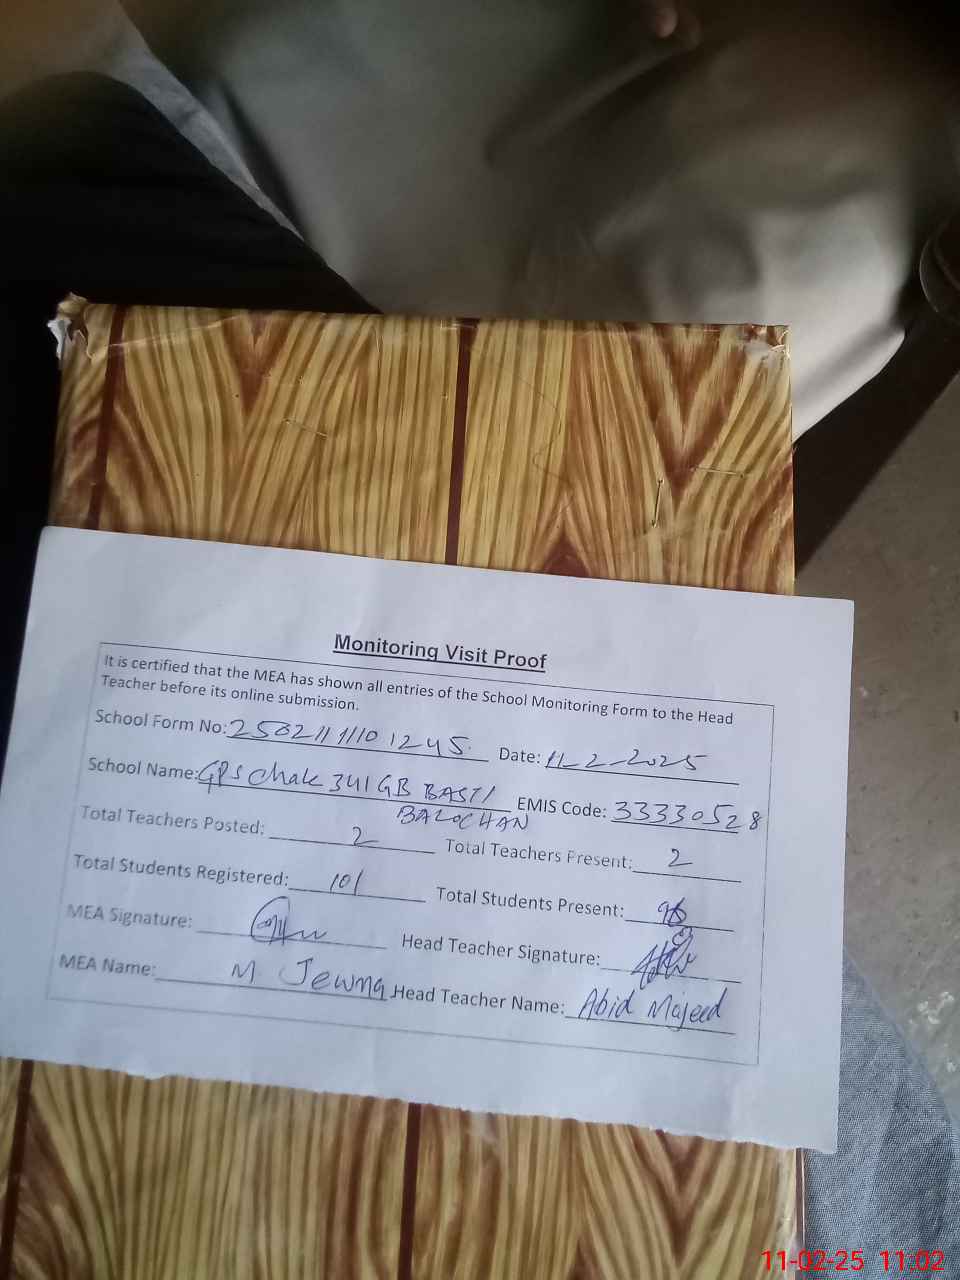 Monitoring Visit Proof
It is certified that the MEA has shown all entries of the School Monitoring Form to the Head
Teacher before its online submission.
School Form No: Date: 11-2-2025
School Name: GPS Chak 341 GB BASTI EMIS Code: 33330528
BALOCHAN
Total Teachers Posted: 2 Total Teachers Present: 2
Total Students Registered: 101 Total Students Present:
MEA Signature: Head Teacher Signature:
MEA Name: M. Head Teacher Name: Abid Majeed
11-02-25 11:02